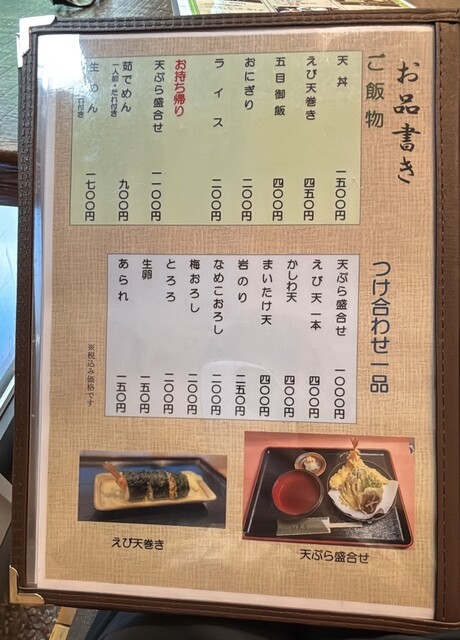 お品書き
ご飯物
天丼 一五〇〇円
えび天巻き 四五〇円
五目御飯 四〇〇円
おにぎり 二〇〇円
ライス 二〇〇円
お持ち帰り
天ぷら盛合せ 一一〇〇円
茹でめん 九〇〇円
一人前・たれ付き
生めん 一七〇〇円
つけ合わせ一品
天ぷら盛合せ 一〇〇〇円
えび天一本 四〇〇円
かしわ天 四〇〇円
まいたけ天 四〇〇円
岩のり 二五〇円
なめこおろし 二〇〇円
梅おろし 二〇〇円
とろろ 二〇〇円
生卵 一五〇円
あられ 一五〇円
※税込み価格です
えび天巻き
天ぷら盛合せ